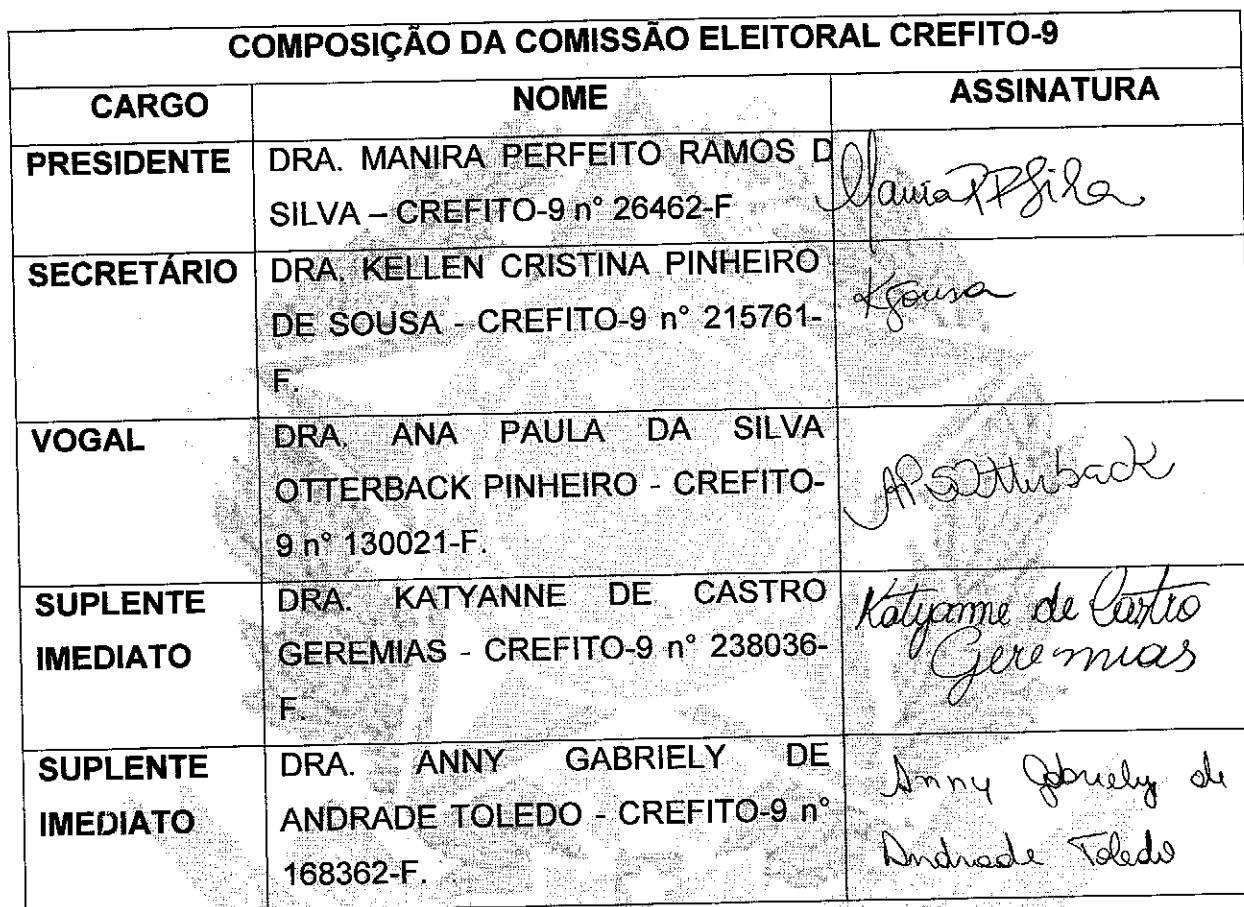 COMPOSIÇÃO DA COMISSÃO ELEITORAL CREFITO-9
CARGO NOME ASSINATURA
PRESIDENTE DRA. MANIRA PERFEITO RAMOS D
SILVA – CREFITO-9 n° 26462-F
SECRETÁRIO DRA. KELLEN CRISTINA PINHEIRO
DE SOUSA - CREFITO-9 n° 215761-
F.
KSousa
VOGAL DRA. ANA PAULA DA SILVA
OTTERBACK PINHEIRO - CREFITO-
9 n° 130021-F.
APSOtterback
SUPLENTE
IMEDIATO
DRA. KATYANNE DE CASTRO
GEREMIAS - CREFITO-9 n° 238036-
F.
Katyanne de Castro
Geremias
SUPLENTE
IMEDIATO
DRA. ANNY GABRIELY DE
ANDRADE TOLEDO - CREFITO-9 n°
168362-F.
Anny Gabriely de
Andrade Toledo